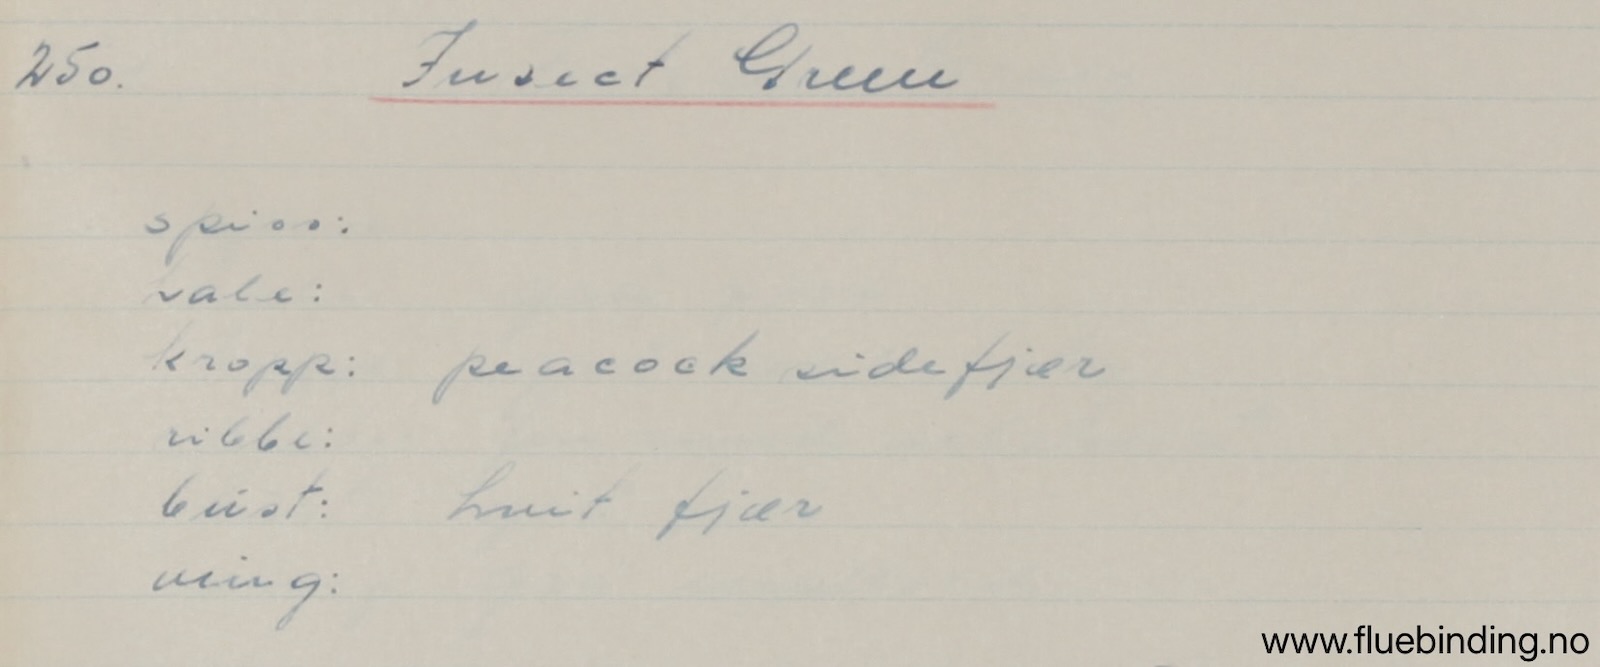 250. Insect Green
spiss:
hale:
kropp: peacock sidefjær
ribbe:
bust: hvit fjær
ving:
www.fluebinding.no